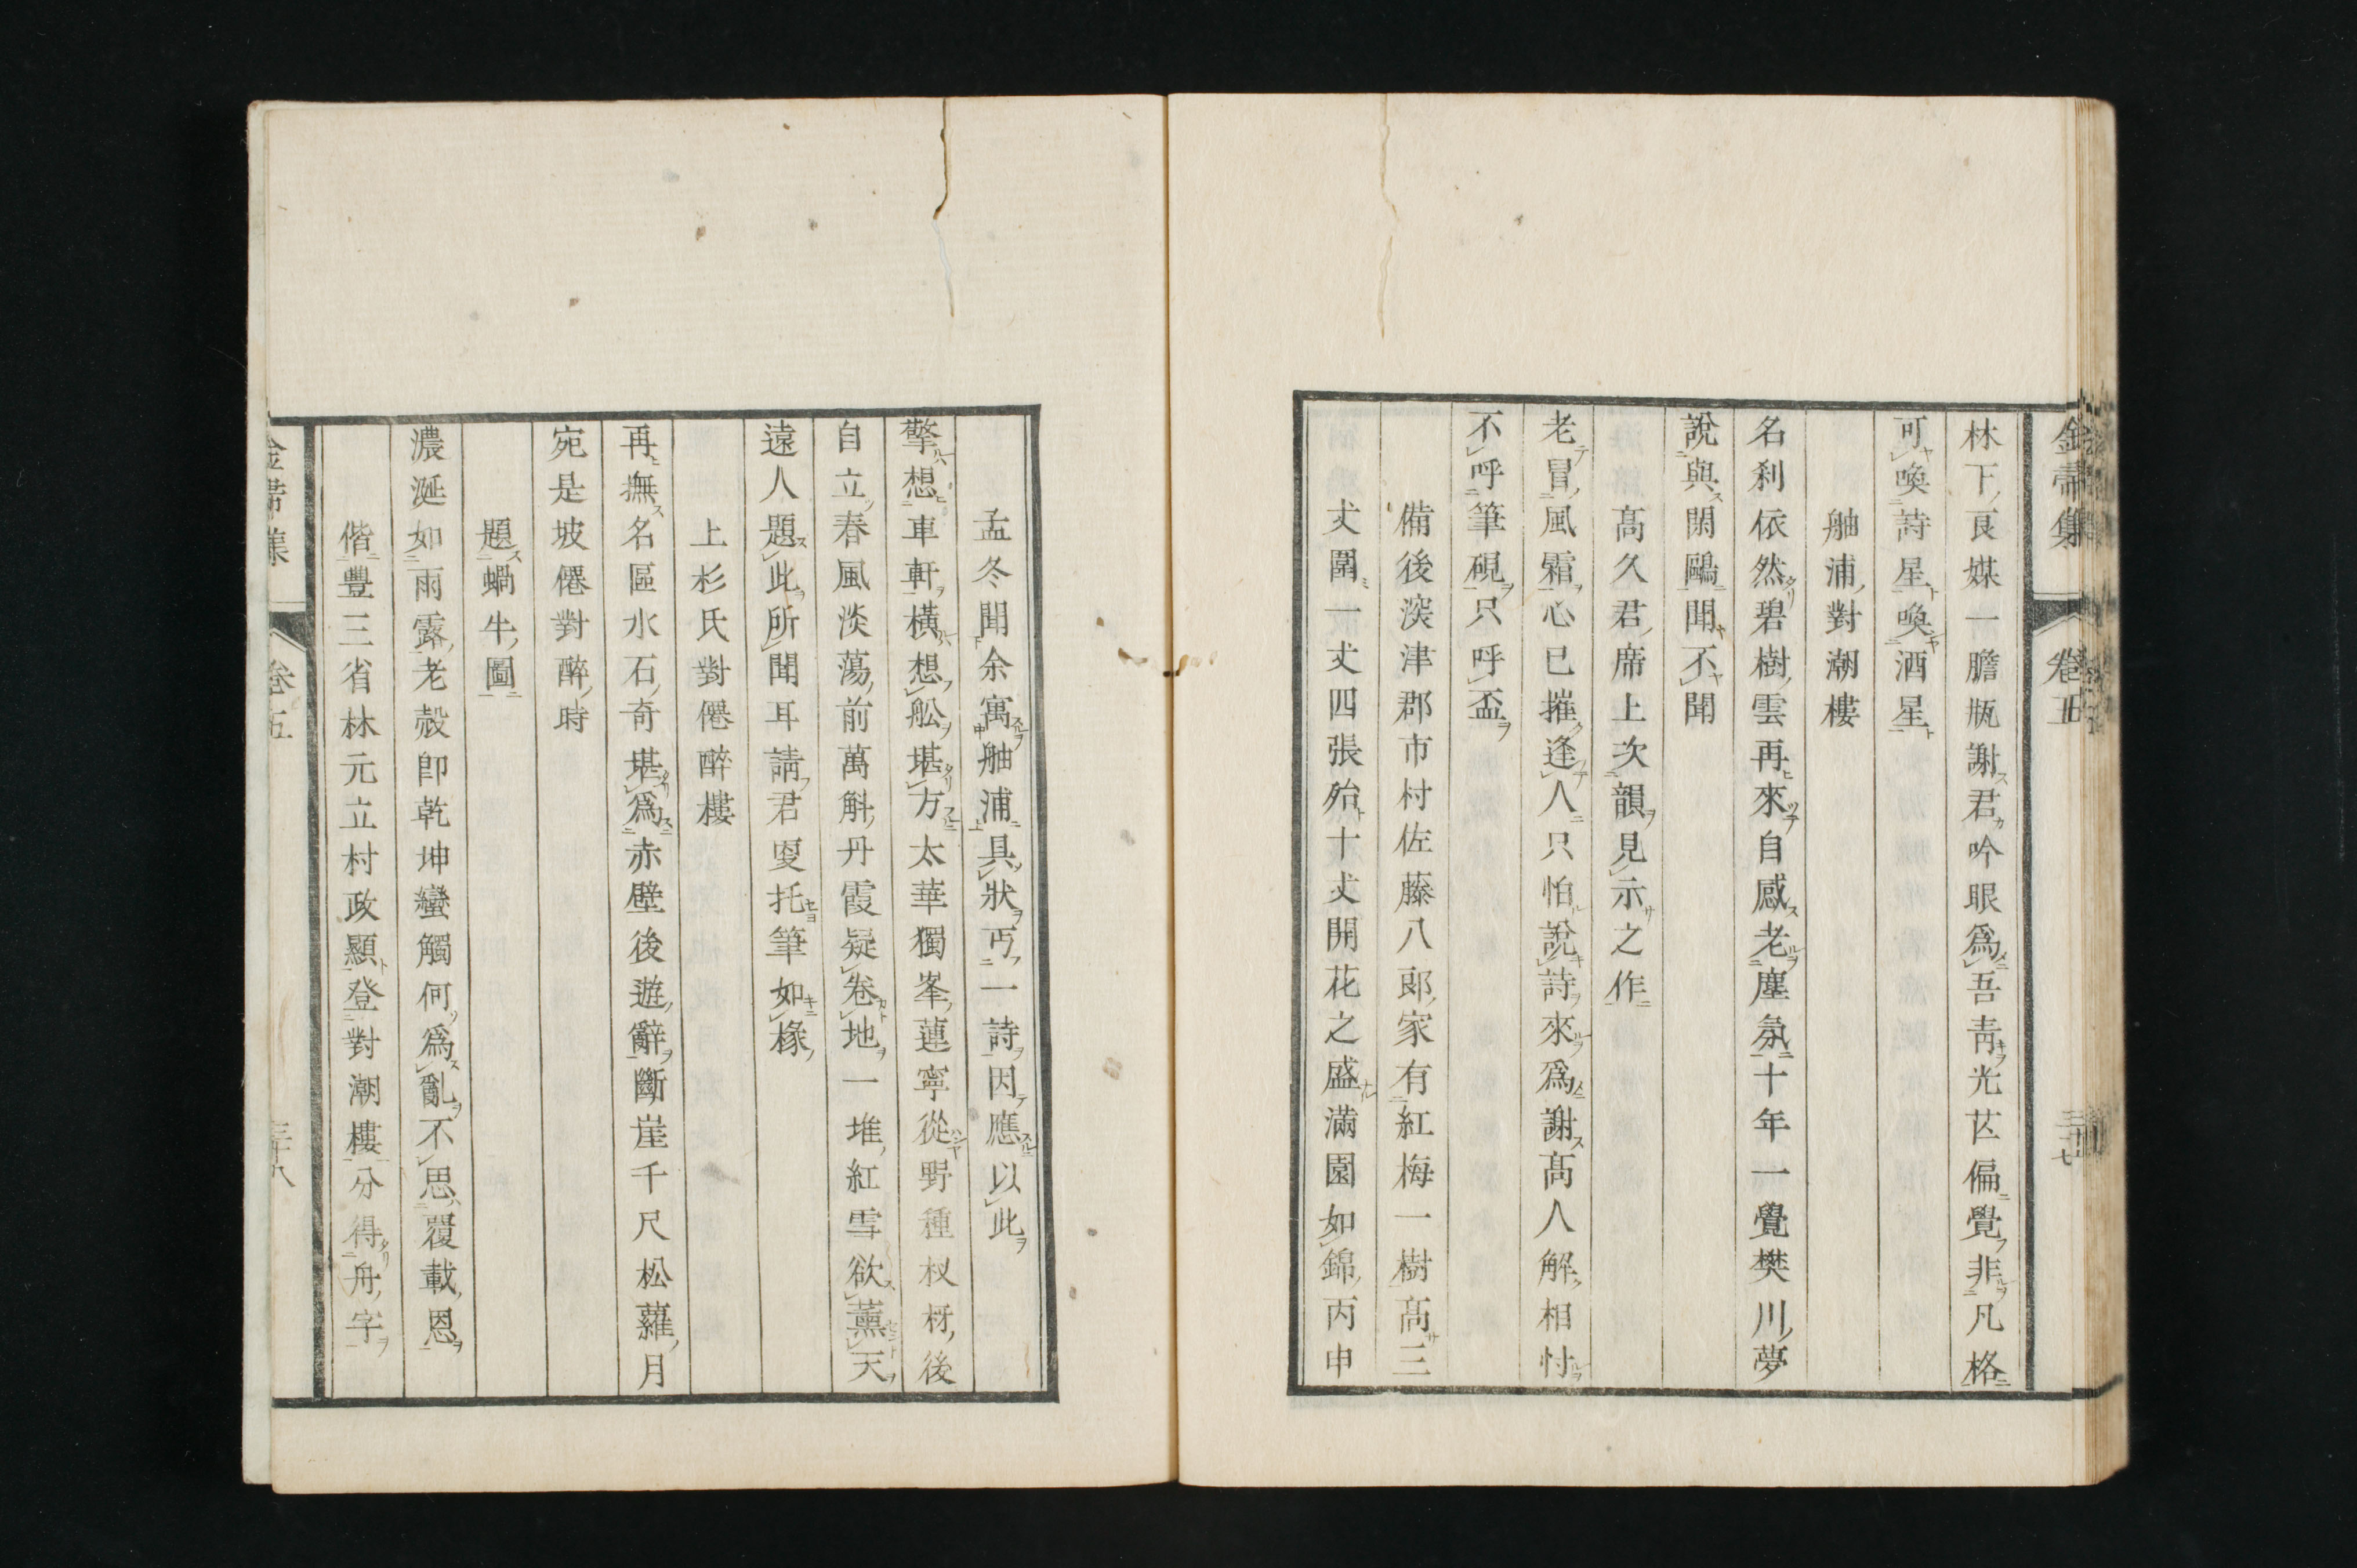 林下良媒一膽瓶謝君吟眼爲吾靑光芒偏覺非凡格
可喚詩星喚酒星
舳浦對潮樓
名刹依然碧樹雲再來自感老塵氛十年一覺樊川夢
說與閑鷗聞不聞
髙久君席上次韻見示之作
老冒風霜心已摧逢人只怕說詩來爲謝髙人解相忖
不呼筆硯只呼盃
備後深津郡市村佐藤八郎家有紅梅一樹髙三
丈圍一丈四張殆十丈開花之盛滿園如錦丙申
孟冬聞余寓舳浦具狀丐一詩因應以此
擎想車軒橫想舩堪方太華獨峯蓮寧從野種杈枒後
自立春風淡蕩前萬斛丹霞疑卷地一堆紅雪欲薰天
遠人題此所聞耳請君更托筆如椽
上杉氏對僊醉樓
再撫名區水石奇堪爲赤壁後遊辭斷崖千尺松蘿月
宛是坡僊對醉時
題蝸牛圖
濃涎如雨露老殼卽乾坤蠻觸何爲亂不思覆載恩
偕豐三省林元立村政顯登對潮樓分得舟字
卷五
三十八